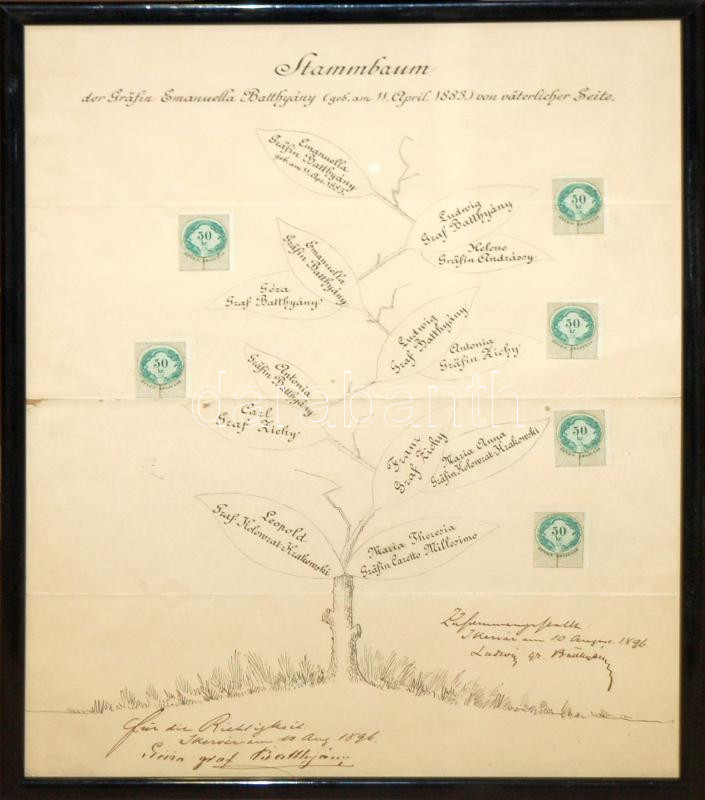 Stammbaum
der Gräfin Emanuella Batthyány (geb. am 11. April. 1883.) von väterlicher Seite.
Emanuella
Gräfin Batthyány
geb. am 11. Apr. 1883.
Ludwig
Graf Batthyány
Helene
Gräfin Andrássy
Emanuella
Gräfin Batthyány
Géza
Graf Batthyány
Ludwig
Graf Batthyány
Antonia
Gräfin Zichy
Antonia
Gräfin Batthyány
Carl
Graf Zichy
Franz
Graf Zichy
Maria Anna
Gräfin Kolowrat-Krakowski
Leopold
Graf Kolowrat-Krakowski
Maria Theresia
Gräfin Caretto Millesimo
50
kr.
50
kr.
50
kr.
50
kr.
50
kr.
50
kr.
darabanth
Zusammengestellt:
Ikervár am 10 August 1896
Ludwig gr. Batthyány
für die Richtigkeit:
Ikervár am 10 Aug 1896.
Géza graf Batthyány